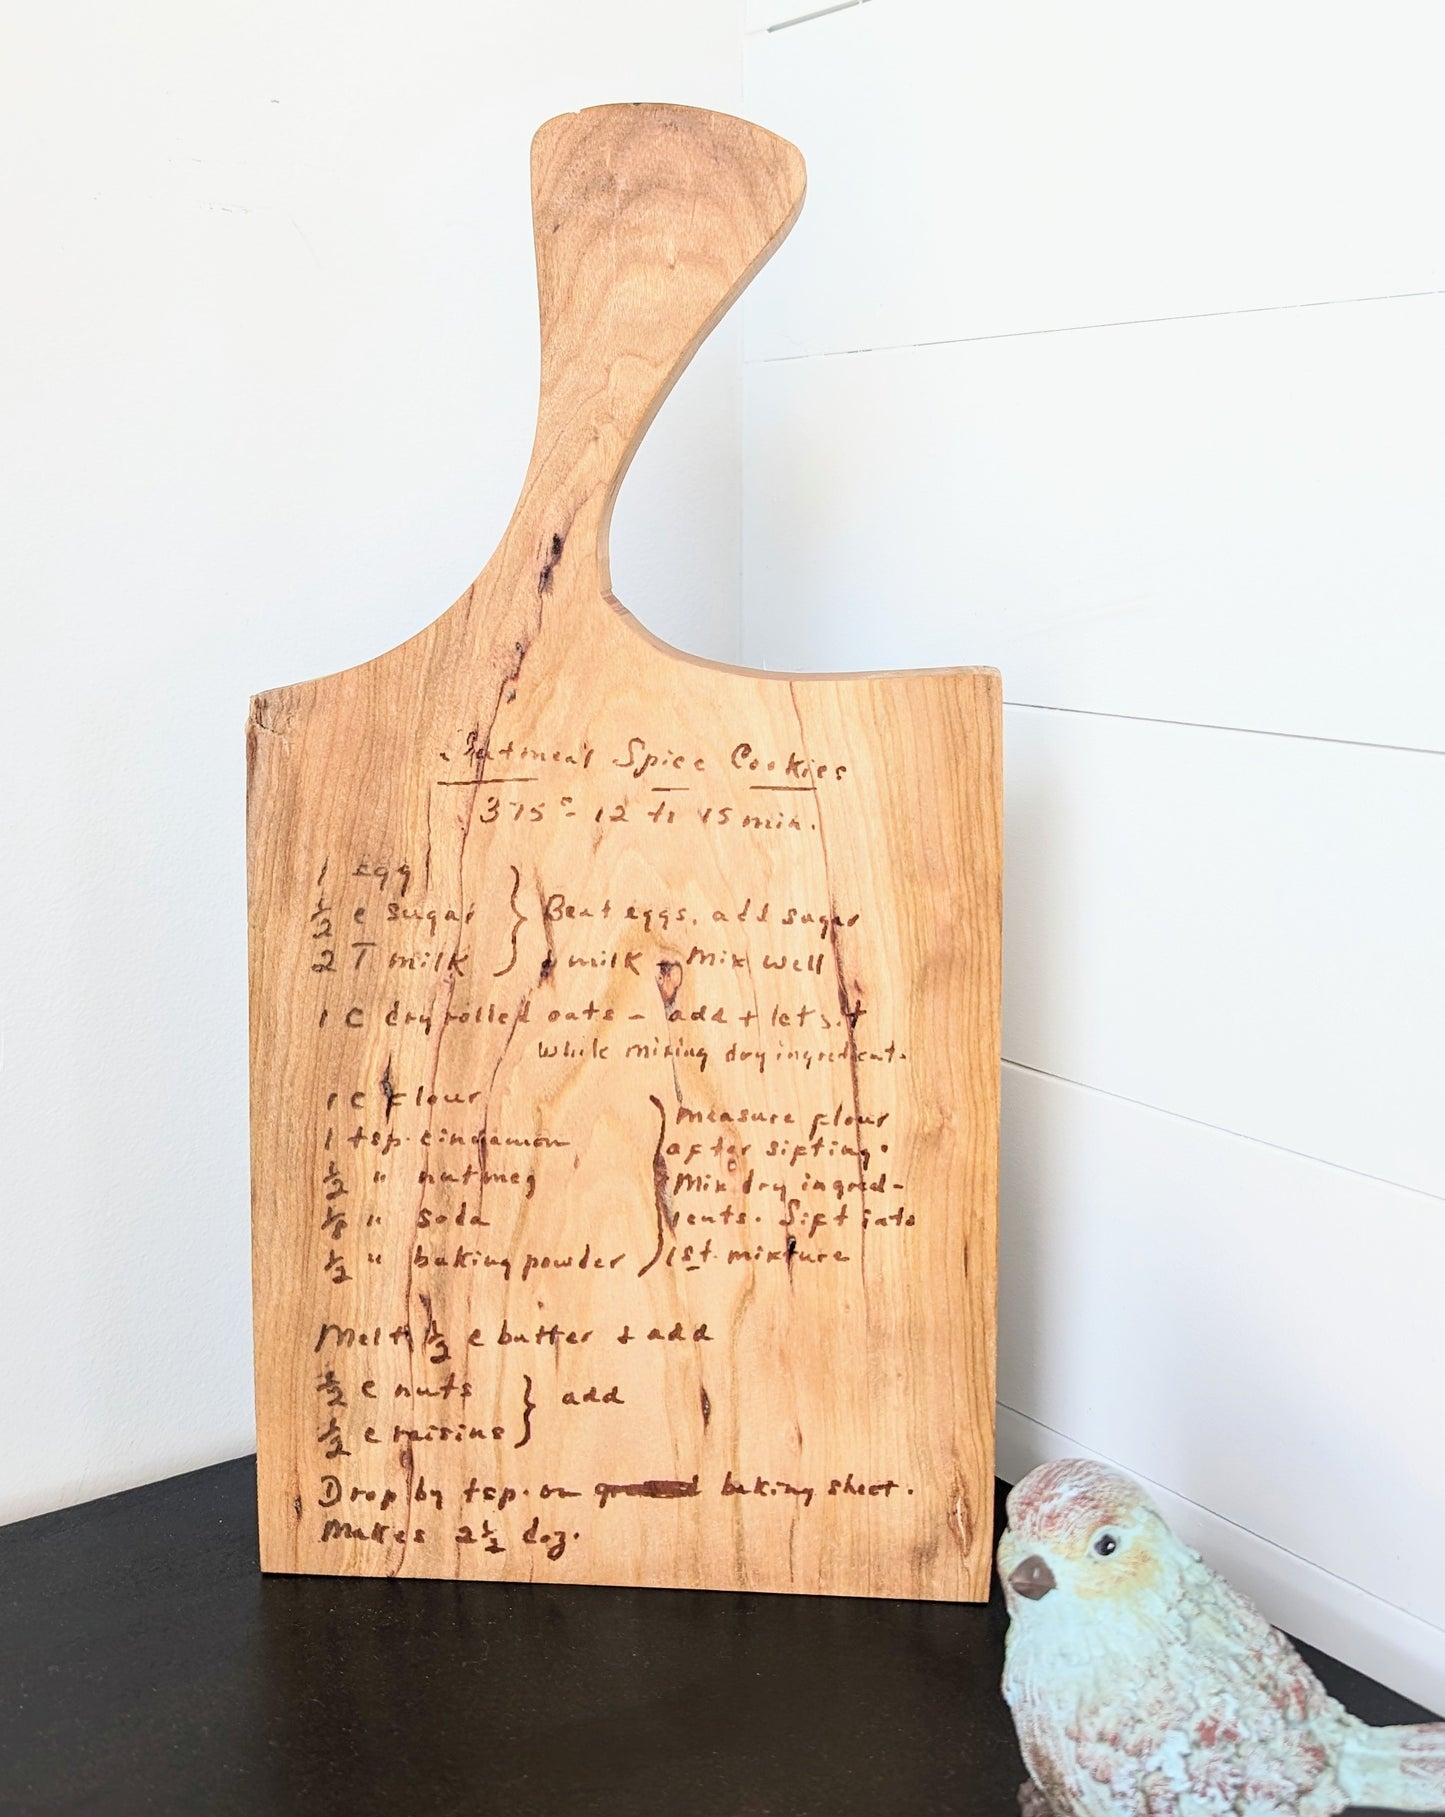 Oatmeal Spice Cookies
375° - 12 to 15 min.
1 egg
1/2 c sugar } Beat eggs, add sugar
2 T milk & milk - Mix well
1 c dry rolled oats - add + let sit
while mixing dry ingredient.
1 c flour } measure flour
1 tsp. cinnamon after sifting.
1/2 " nutmeg Mix dry ingred-
" soda ients. Sift into
1/2 " baking powder 1st. mixture
Melt 1/2 c butter & add
1/2 c nuts } add
1/2 c raisins
Drop by tsp. on baking sheet.
Makes 2 1/2 doz.